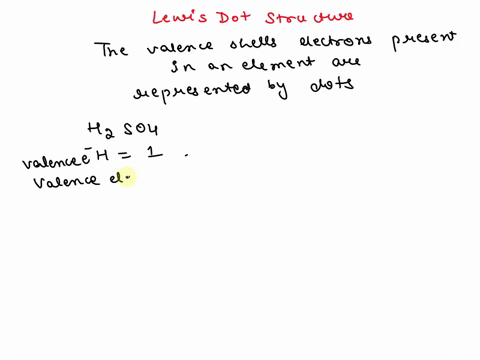 Lewis Dot Structure
The valence shells electrons present
in an element are
represented by dots
H2 SO4
valence e- H = 1 .
Valence el.